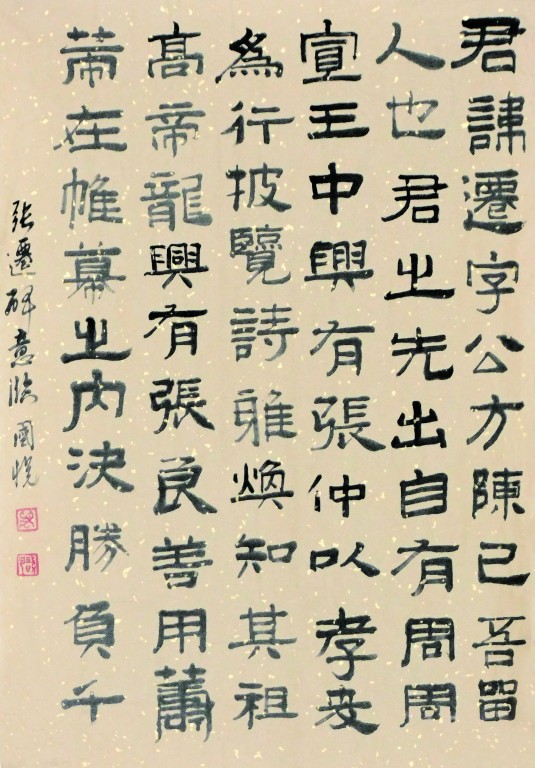 君諱遷字公方陳已吾留
人也君之先出自有周周
宣王中興有張仲以孝友
為行披覽詩雅煥知其祖
高帝龍興有張良善用籌
策在帷幕之内決勝負千
張遷碑意臨國悦